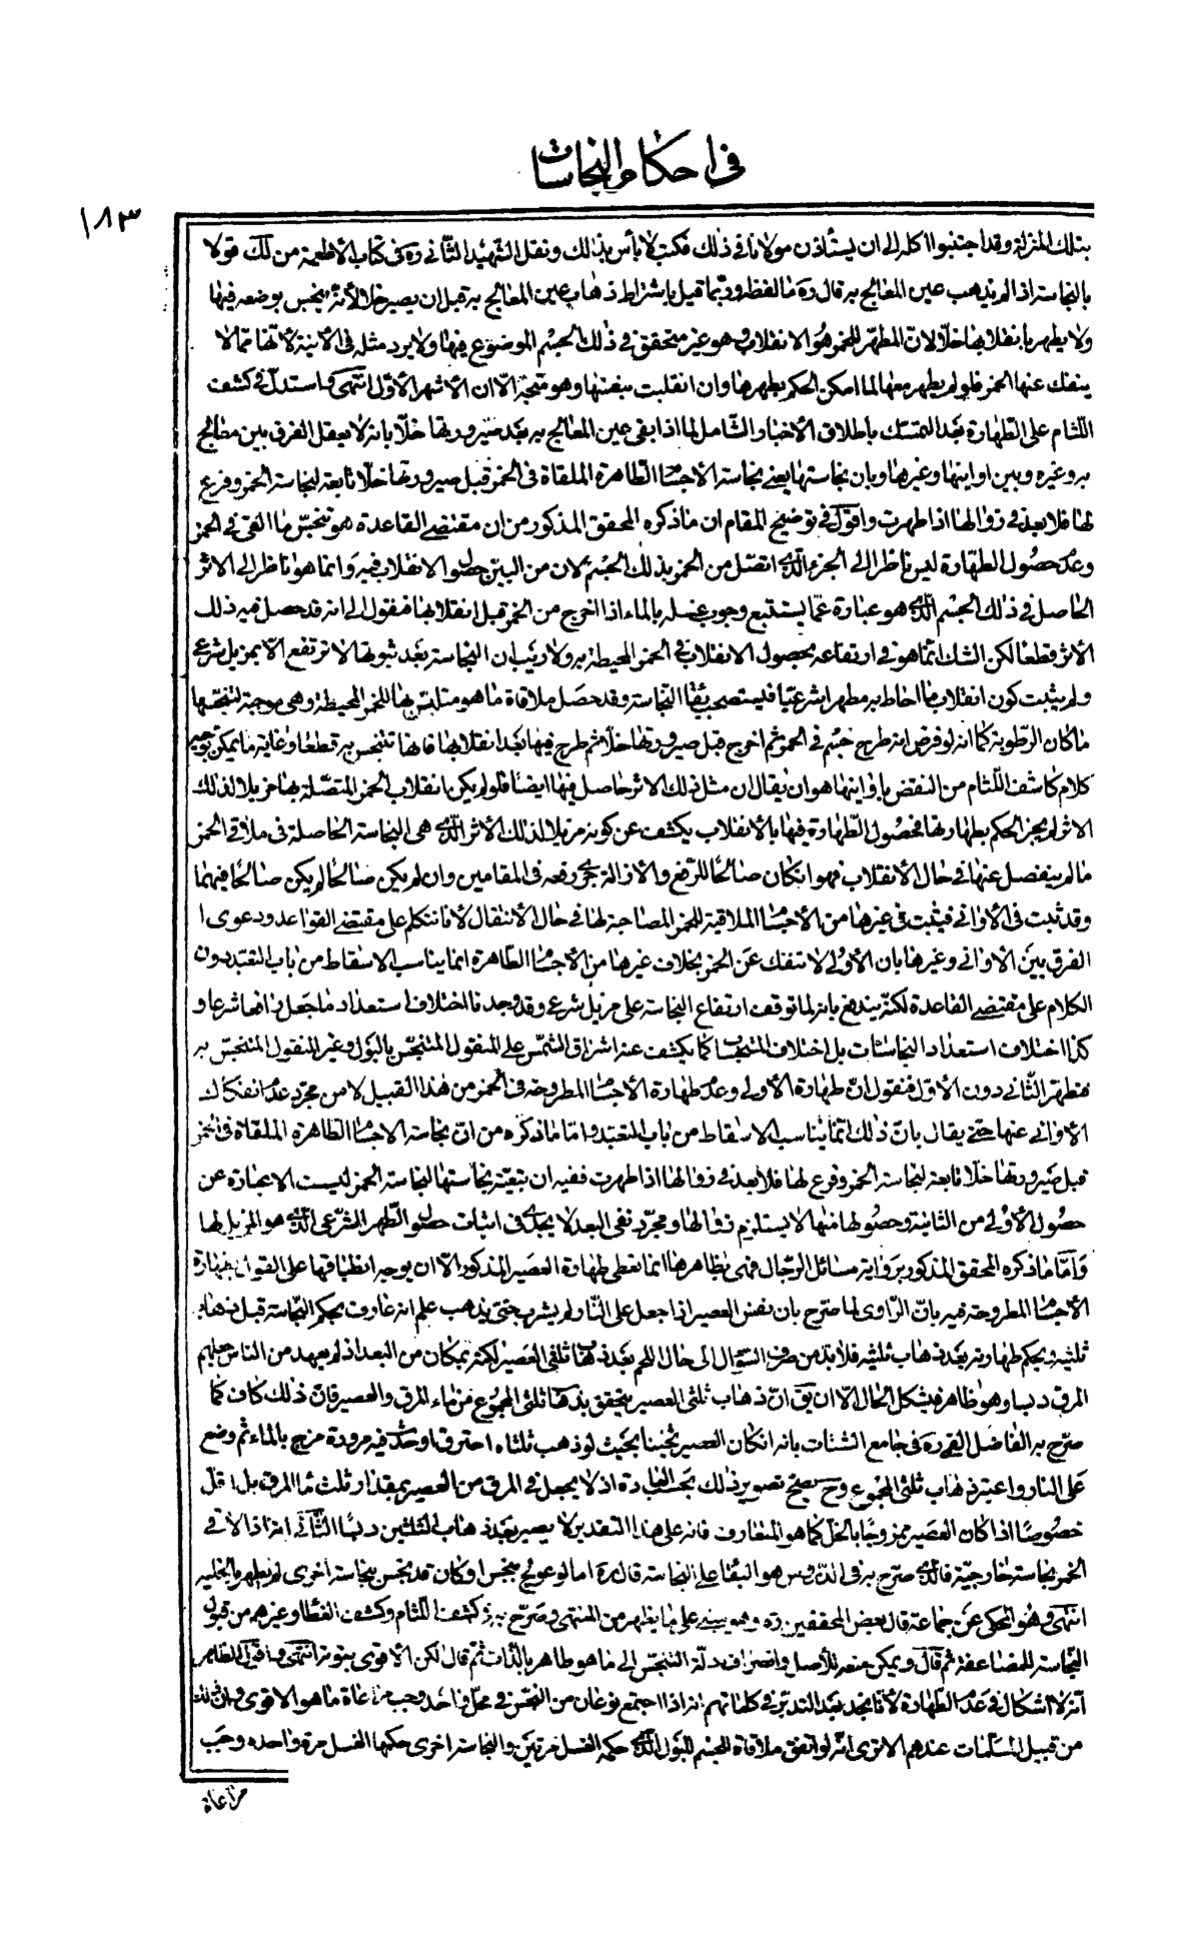 في احكام النجاسات
١٨٣
بتلك المنزلة وقد اجتنبوا اكله الى ان يستأذن مولانا في ذلك فكتب لا بأس بذلك ونقل الشهيد الثاني ره في كتاب الاطعمة من لك قولا
بالنجاسة اذا لم يذهب عين المعالج به قال ره ما لفظه وربما قيل باشتراط ذهاب عين المعالج به قبل ان يصير خلا لأنه ينجس بوضعه فيها
ولا يطهر بانقلابها خلا لان المطهر للخمر هو الانقلاب وهو غير متحقق في ذلك الجسم الموضوع فيها ولا يرد مثله في الأنية لأنها مما لا
ينفك عنها الخمر فلو لم يطهر معها لما امكن الحكم بطهرها وان انقلبت بنفسها وهو متجه الا ان الأشهر الأول انتهى واستدل في كشف
اللثام على الطهارة بعد التمسك بأطلاق الأخبار الشامل لما اذا بقى عين المعالج به بعد صيرورتها خلا بانه لا يعقل الفرق بين معالج
به وغيره وبين اوانيها وغيرها وبان نجاستها يعنى نجاسة الأجسام الطاهرة الملقاة في الخمر قبل صيرورتها خلا تابعة لنجاسة الخمر وفرع
لها فلا بعد في زوالها اذا طهرت واقول في توضيح المقام ان ما ذكره المحقق المذكور من ان مقتضى القاعدة هو تنجس ما القى في الخمر
وعدم حصول الطهارة ليس ناظرا الى الجزء الذي اتصل من الخمر بذلك الجسم لان من البين حصول الانقلاب فيه وانما هو ناظر الى الاثر
الحاصل في ذلك الجسم الذي هو عبارة عما يستتبع وجوب غسله بالماء اذا اخرج من الخمر قبل انقلابها فنقول الى انه قد حصل فيه ذلك
الأثر قطعا لكن الشك انما هو في ارتفاعه بحصول الانقلاب في الخمر المحيطة به ولا ريب ان النجاسة بعد ثبوتها لا ترتفع الا بمزيل شرعي
ولم يثبت كون انقلاب ما احاط به مطهرا شرعيا فيستصحب بقاء النجاسة وقد حصل ملاقاة ما هو متلبس بها للخمر المحيطة وهى موجبة لتنجسها
ما كان الرطوبة كما انه لو فرض انه طرح جسم في الخمر ثم اخرج قبل صيرورتها خلا ثم طرح فيها بعد انقلابها فانها تتنجس به قطعا وغاية ما يمكن توجيه
كلام كاشف اللثام من النقض باوانيها هو ان يقال ان مثل ذلك الاثر حاصل فيها ايضا فلو لم يكن انقلاب الخمر المتصلة بها مزيلا لذلك
الاثر لم يجز الحكم بطهارتها فحصول الطهارة فيها بالانقلاب يكشف عن كونه مزيلا لذلك الأثر الذي هى النجاسة الحاصلة في ملاقي الخمر
ما لم ينفصل عنها في حال الأنقلاب فهو ان كان صالحا للرفع والأزالة جرى رفعه في المقامين وان لم يكن صالحا لم يكن صالحا فيهما
وقد ثبت في الأواني فيثبت في غيرها من الأجسام الملاقية للخمر المصاحبة لها في حال الأنتقال لأنا نتكلم على مقتضى القواعد ودعوى
الفرق بين الأواني وغيرها بان الأولى لا تنفك عن الخمر بخلاف غيرها من الأجسام الطاهرة انما يناسب الاسقاط من باب التعبد دون
الكلام على مقتضى القاعدة لكنه يندفع بانه لما توقف ارتفاع النجاسة على مزيل شرعي وقد وجدنا اختلاف استعداد ما جعل رافعا شرعا و
كذا اختلاف استعداد النجاسات بل اختلاف المتنجسات كما يكشف عنه اشراق الشمس على المنقول المتنجس بالبول وغير المنقول المتنجس به
فتطهر الثاني دون الأول فنقول ان طهارة الأولى وعدم طهارة الأجسام المطروحة في الخمر من هذا القبيل لا من مجرد عدم انفكاك
الأواني عنها حتى يقال بان ذلك انما يناسب الاسقاط من باب التعبد واما ما ذكره من ان نجاسة الاجسام الطاهرة الملقاة في الخمر
قبل صيرورتها خلا تابعة لنجاسة الخمر وفرع لها فلا بعد في زوالها اذا طهرت ففيه ان تبعية نجاستها لنجاسة الخمر ليست الا عبارة عن
حصول الأولى من الثانية وحصولها منها لا يستلزم زوالها ومجرد نفى البعد لا يجدى في اثبات حصول الطهر الشرعي الذي هو المزيل لها
واما ما ذكره المحقق المذكور برواية مسائل الرجال فهى بظاهرها انما تعطى طهارة العصير المذكور الا ان يوجه انطباقها على القول بطهارة
الأجسام المطروحة فيه بان الراوى لما صرح بان نفس العصير اذا جعل على النار لم يشرب حتى يذهب علم انه عارف بحكم النجاسة قبل ذهاب
ثلثيه وبحكم طهارته بعد ذهاب ثلثيه فلا بد من صرف السؤال الى حال اللحم بعد ذهاب ثلثي العصير لكنه بمكان من البعد اذ لم يعهد من الناس جعلهم
المرق دبسا وهو ظاهر فيشكل الحال الا ان يق ان ذهاب ثلثى العصير يتحقق بذهاب ثلثى المجموع من ماء المرق والعصير فان ذلك كاف كما
صرح به الفاضل القمى ره في جامع الشتات بانه ان كان العصير ثخينا بحيث لو ذهب ثلثاه احترق او حدث فيه مرورة مزج بالماء ثم وضع
على النار واعتبر ذهاب ثلثى المجموع وح يصح تصوير ذلك بحسب العادة اذ لا يجعل في المرق من العصير بمقدار ثلث ماء المرق بل اقل
خصوصا اذا كان العصير ممزوجا بالخل كما هو المتعارف فانه على هذا التقدير لا يصير بعد ذهاب الثلثين دبسا الثاني انه اذا لاقى
الخمر نجاسة خارجية فالذي صرح به في الدروس هو البقاء على النجاسة قال ره اما لو عولج بنجس او كان قد نجس بنجاسة اخرى لم يطهر بالخلية
انتهى وهو المحكى عن جماعة قال بعض المحققين ره وهو مبنى على ما يظهر من المنتهى وصرح به في كشف اللثام وكشف الغطاء وغيرهم من قبول
النجاسة للمضاعفة ثم قال ويمكن منعه للأصل وانصراف دلة التنجس الى ما هو طاهر بالذات ثم قال لكن الأقوى ثبوته انتهى واقول الظاهر
انه لا اشكال في عدم الطهارة لأنا نجد بعد التدبر في كلماتهم انه اذا اجتمع نوعان من النجس في محل واحد وجب مراعاة ما هو الاقوى وان ذلك
من قبيل المسلمات عندهم الا ترى انه لو اتفق ملاقاة الجسم للبول الذي حكمه الغسل مرتين والنجاسة اخرى حكمها الغسل مرة واحدة وجب
مراعاة